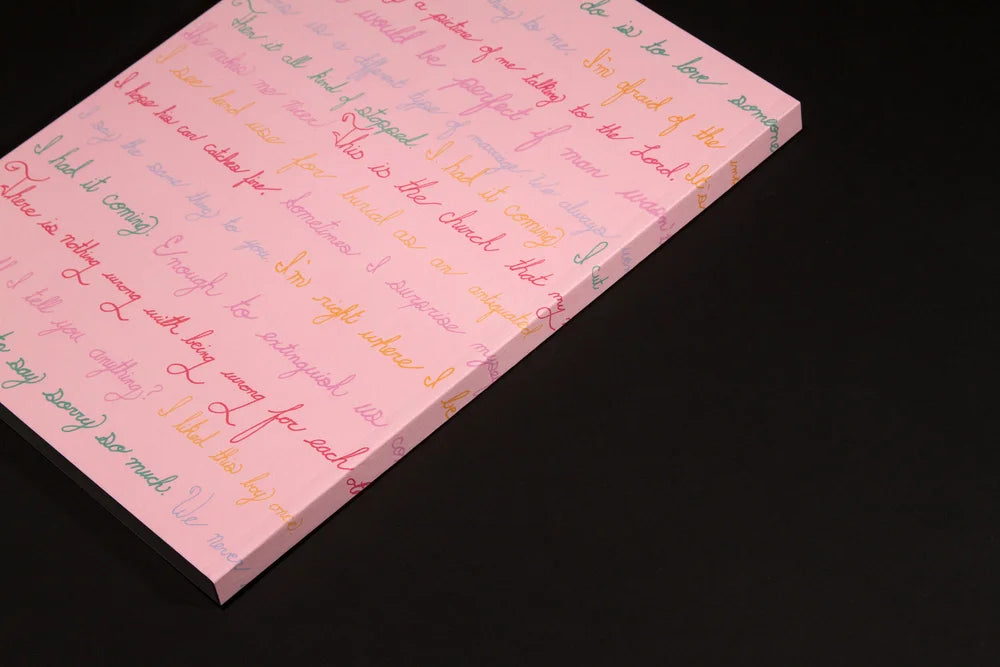 do is to love someone
to me. I'm afraid of the
a picture of me talking to the Lord. It's
would be perfect if man
is a different type of marriage. We always
Then it all kind of stopped. I had it coming. I cut
She makes me nicer. This is the church that my
I see land use for burial as an antiquated
I hope his car catches fire. Sometimes I surprise myse
I say the same thing to you. I'm right where I be
I had it coming. Enough to extinguish us co
There is nothing wrong with being wrong for each
I tell you anything? I liked this boy once
to say sorry so much. We never